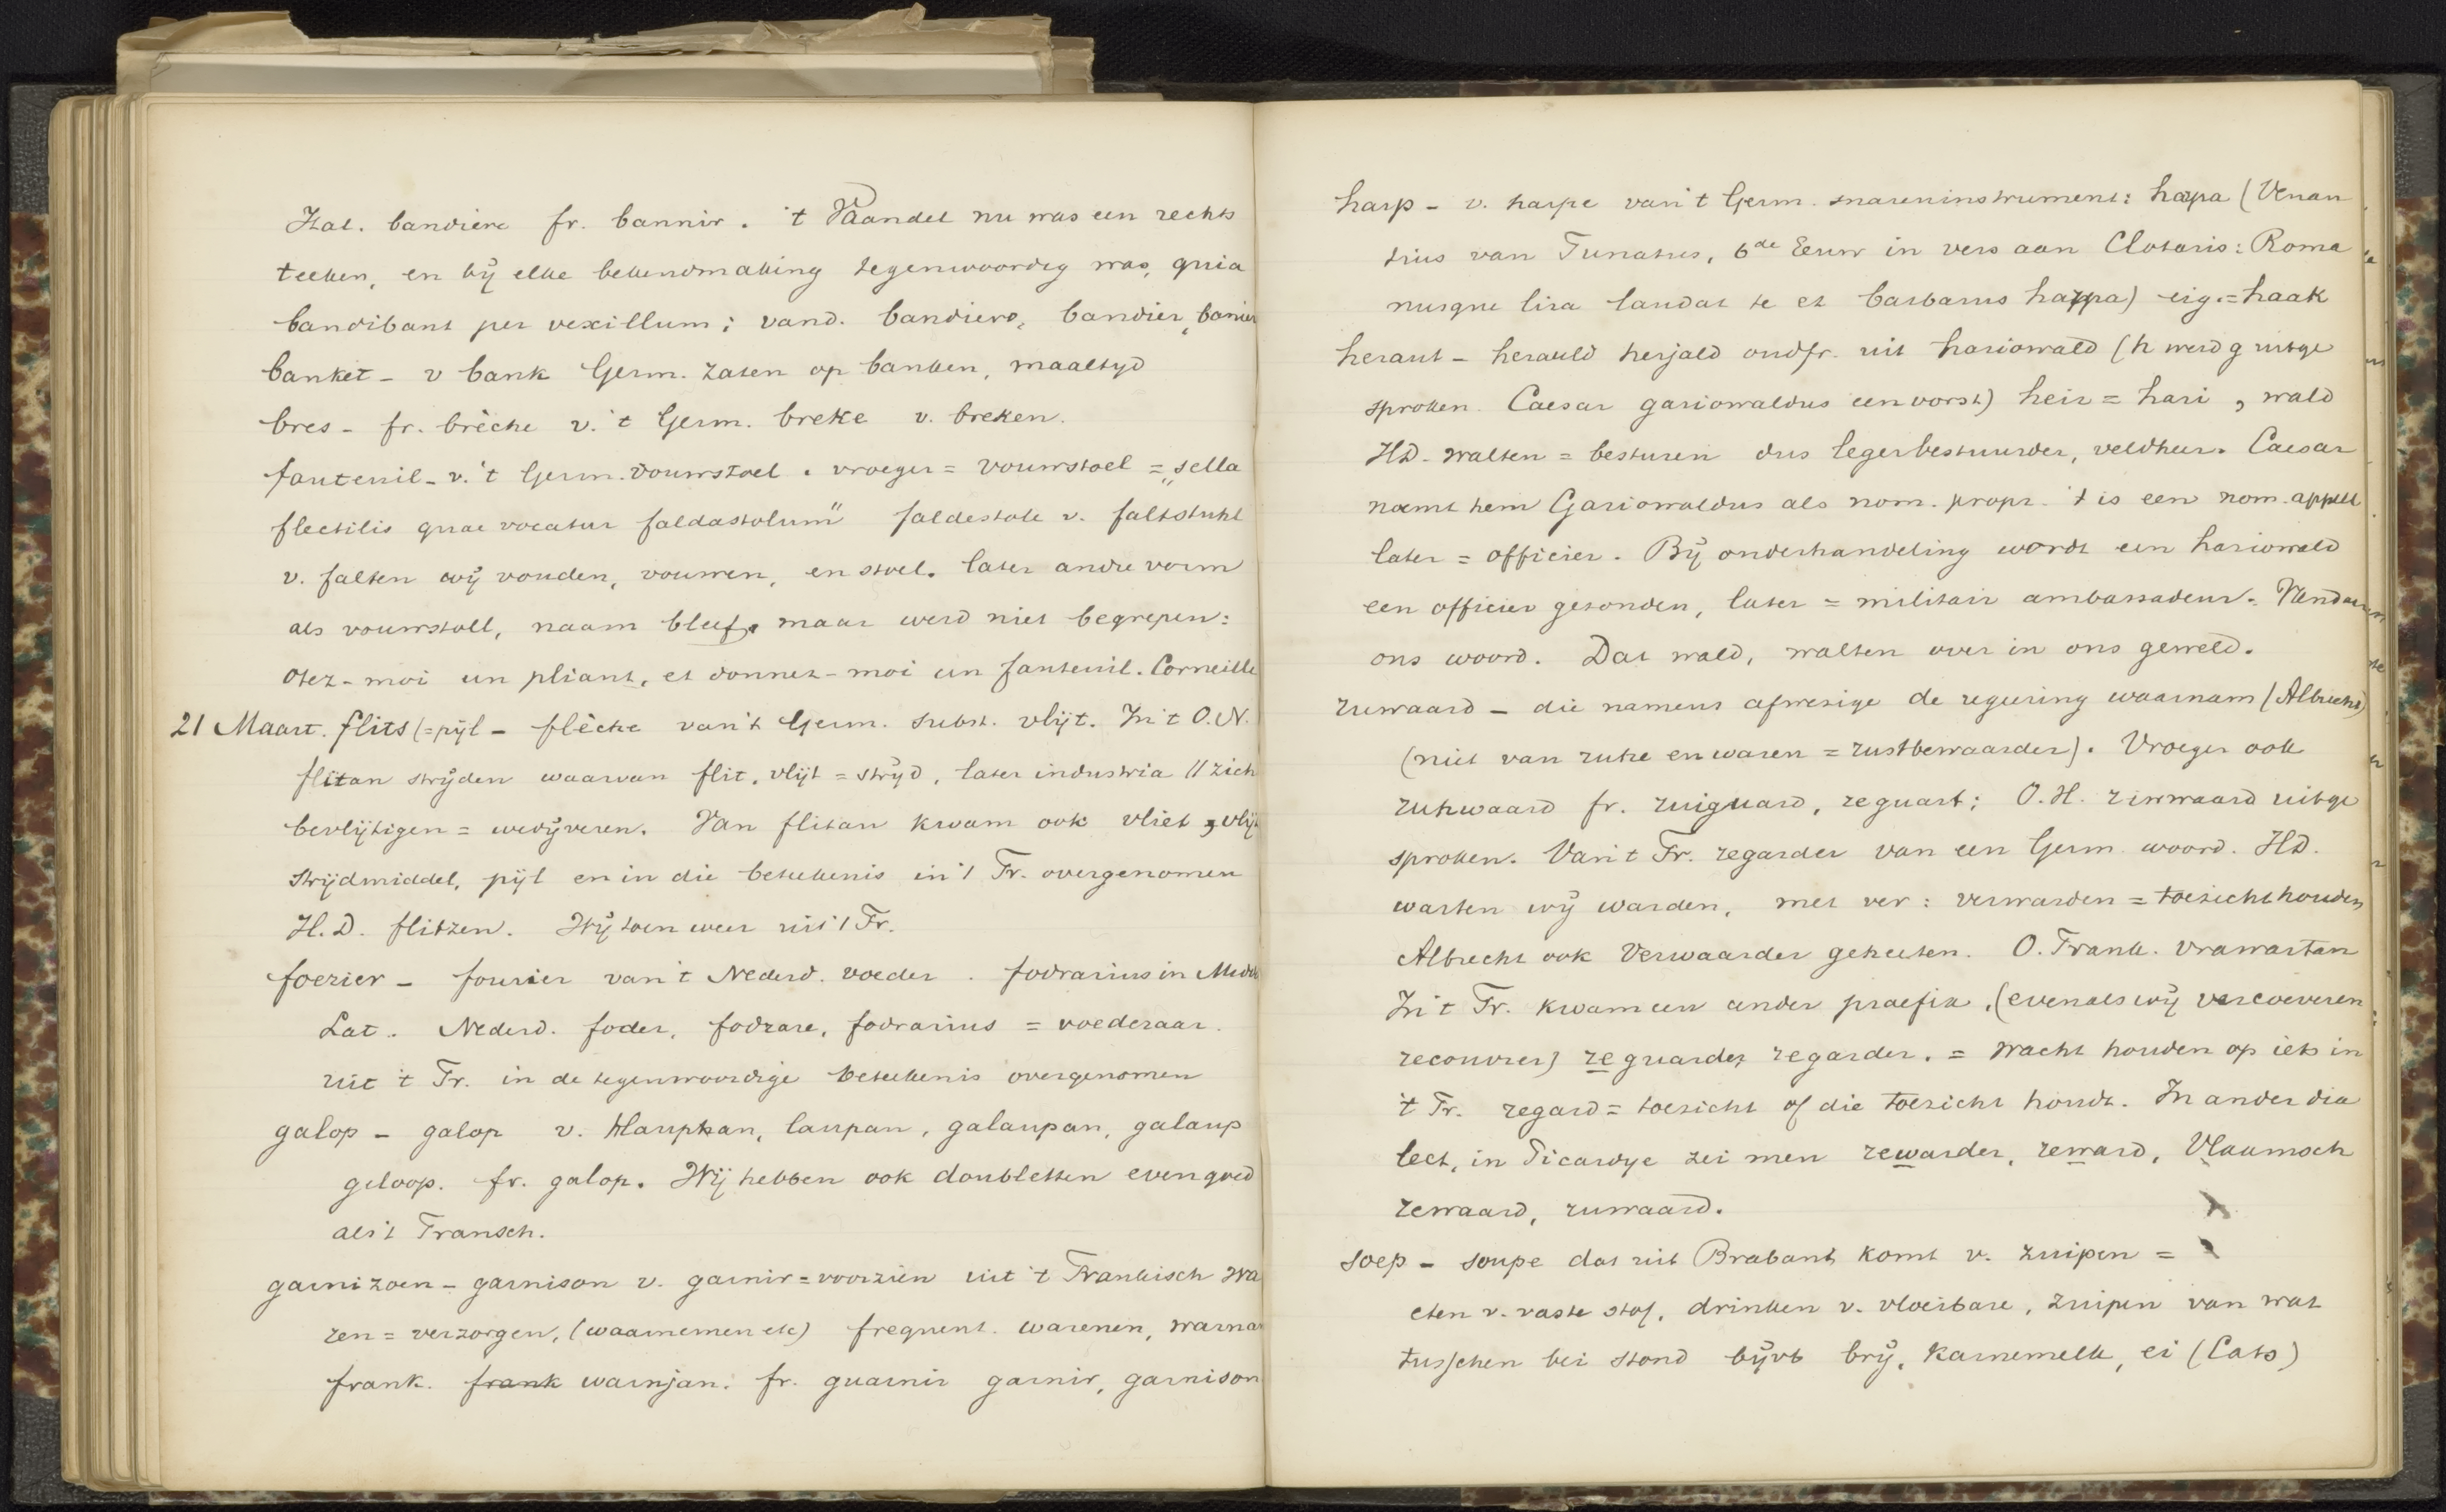 Ital. bandiere fr. bannir. 't Vaandel nu was een rechts
teeken, en bij elke bekendmaking tegenwoordig was, quia
bandibant per vexillum; vand. bandiere, bandier, banier
banket - v bank Germ. zaten op banken, maaltyd
bres - fr. brèche v. 't Germ. breke v. breken.
fauteuil - v. 't Germ. vouwstoel. vroeger = vouwstoel = „sella
flectilis quae vocatur faldastolum" faldestole v. faltstuhl
v. falten wij vouden, vouwen, en stoel. later andre vorm
als vouwstoel, naam bleef, maar werd niet begrepen:
otez-moi un pliant, et donnez-moi un fauteuil. Corneille
21 Maart. flits (=pijl - flèche van 't Germ. subst. vlijt. In 't O.N.
flitan strijden waarvan flit, vlijt = strijd, later industria // zich
bevlijtigen = wedijveren. Van flitan kwam ook vliet, vlijt
strijdmiddel, pijl en in die beteekenis in 't Fr. overgenomen
H.D. flitzen. Wij toen weer uit 't Fr.
foerier - fourier van 't Nederd. voeder. fodrarius in Midd
Lat. Nederd. foder, fodrare, fodrarius = voederaar.
uit 't Fr. in de tegenwoordige beteekenis overgenomen
galop - galop v. hlauphan, laupan, galaupan, galaup
geloop. fr. galop. Wij hebben ook doubletten evengoed
als 't Fransch.
garnizoen - garnison v. garnir = voorzien uit 't Frankisch wa
ren = verzorgen, (waarnemen etc) frequent. warenen, warnan
frank. frank warnjan. fr. guarnir garnir, garnison
harp - v. harpe van 't Germ. snareninstrument: harpa (Venan
tius van Tunatus, 6de Eeuw in vers aan Clotaris: Roma
nusque lira laudat te et barbarus harpa) eig. = haak
heraut - herauld herjald oudfr. uit hariowald (h werd g uitge
sproken. Caesar gariowaldus een vorst) heir = hari, wald
HD. walten = besturen dus legerbestuurder, veldheer. Caesar
noemt hem Gariowaldus als nom. propr. 't is een nom. appell
later = officier. Bij onderhandeling wordt een hariowald
een officier gezonden, later = militair ambassadeur. Vandaar
ons woord. Dat wald, walten over in ons geweld.
ruwaard - die namens afwezige de regeering waarnam (Albrecht)
(niet van ruhe en waren = rustbewaarder). Vroeger ook
ruhwaard fr. ruiguard, reguart; O.H. riewwaard uitge
sproken. Van 't Fr. regarder van een Germ. woord. HD.
warten wij warden, met ver: verwarden = toezicht houden
Albrecht ook Verwaarder geheeten. O. Frank. vrawartan
In 't Fr. kwam een ander praefix, (evenals wij vercoeveren
recouvrer) reguarder regarder. = wacht houden op iets in
't Fr. regard = toezicht of die toezicht houdt. In ander dia
lect, in Picardye zei men rewarder, reward, Vlaamsch
rewaard, ruwaard.
soep - soupe dat uit Brabant komt v. zuipen =
eten v. vaste stof, drinken v. vloeibare, zuipen van wat
tusschen bei stond bijvb brij, karnemelk, ei (Cats)